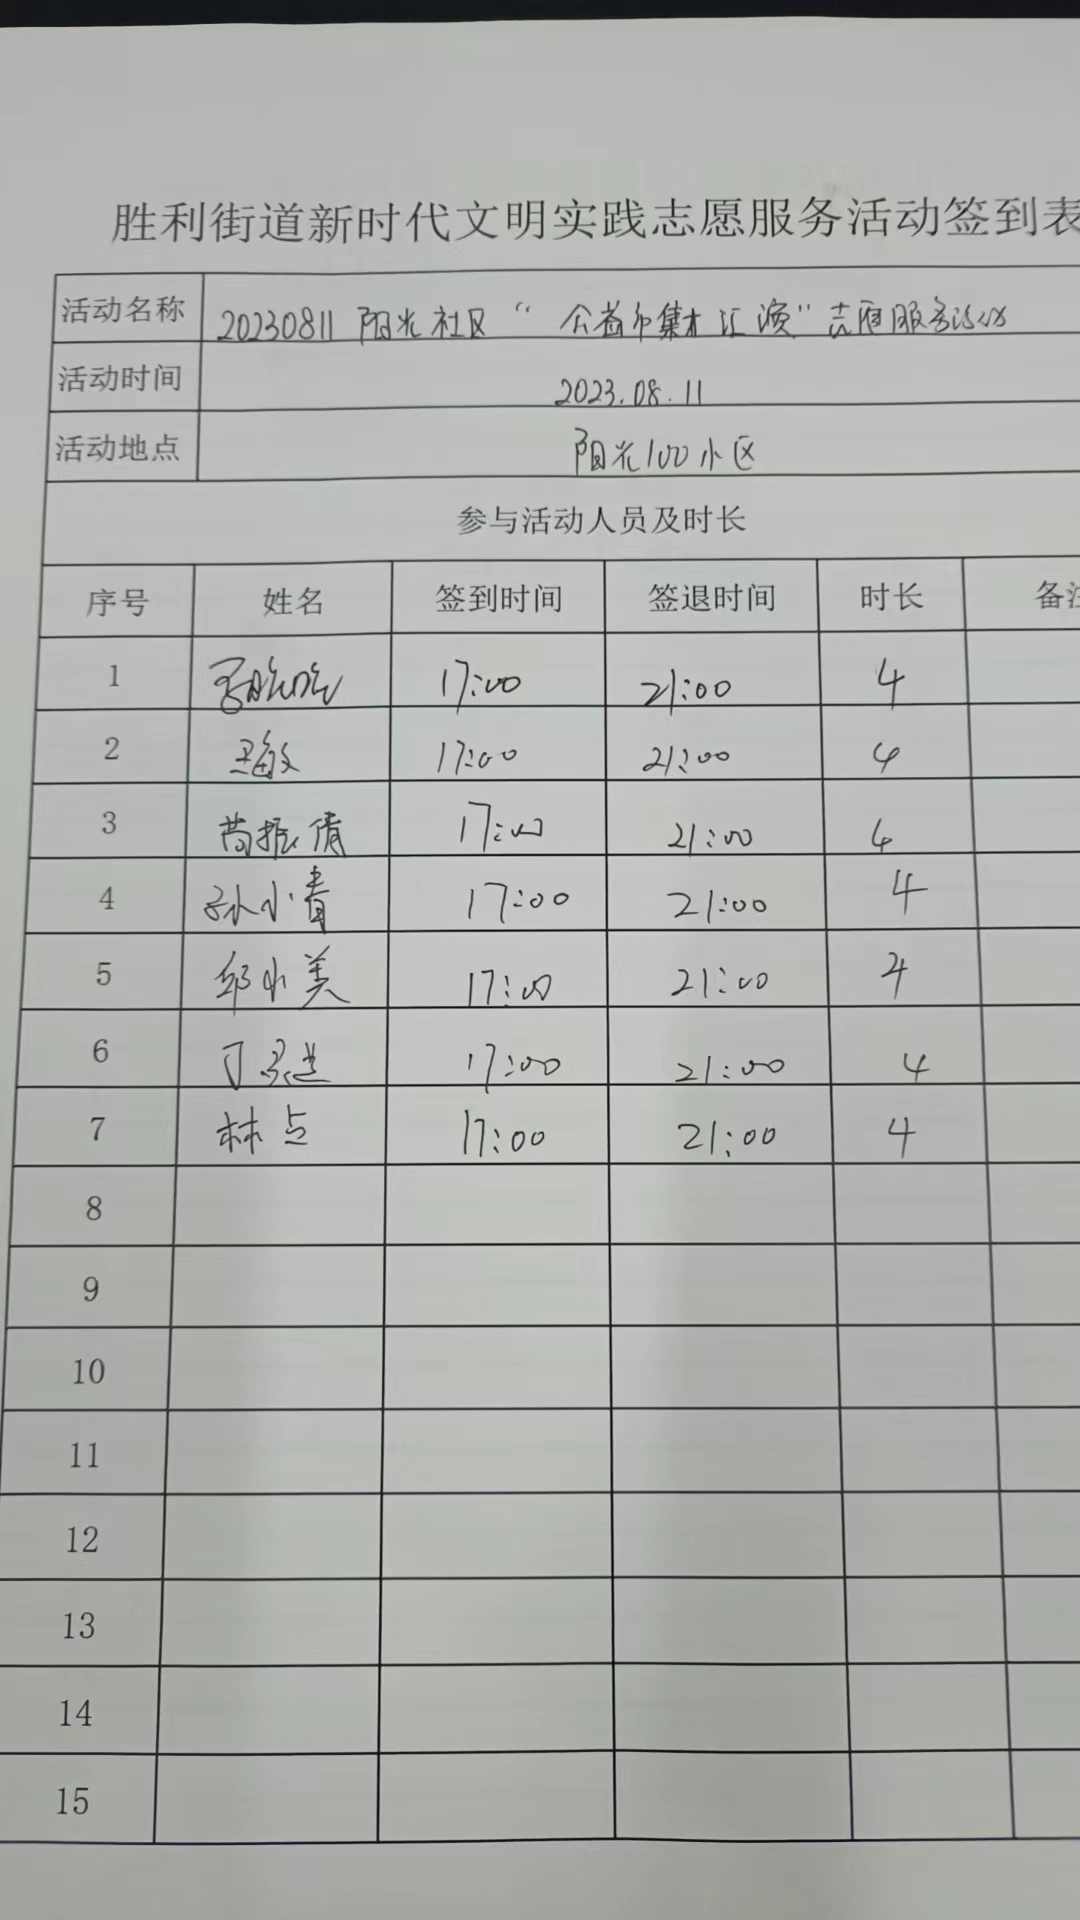 胜利街道新时代文明实践志愿服务活动签到表
活动名称 20230811 阳光社区“公益市集 汇演”志愿服务活动
活动时间 2023.08.11
活动地点 阳光100小区
参与活动人员及时长
序号 姓名 签到时间 签退时间 时长 备注
1 17:00 21:00 4
2 王敏 17:00 21:00 4
3 苗振倩 17:00 21:00 4
4 孙小青 17:00 21:00 4
5 邱小美 17:00 21:00 4
6 丁 17:00 21:00 4
7 林点 17:00 21:00 4
8
9
10
11
12
13
14
15